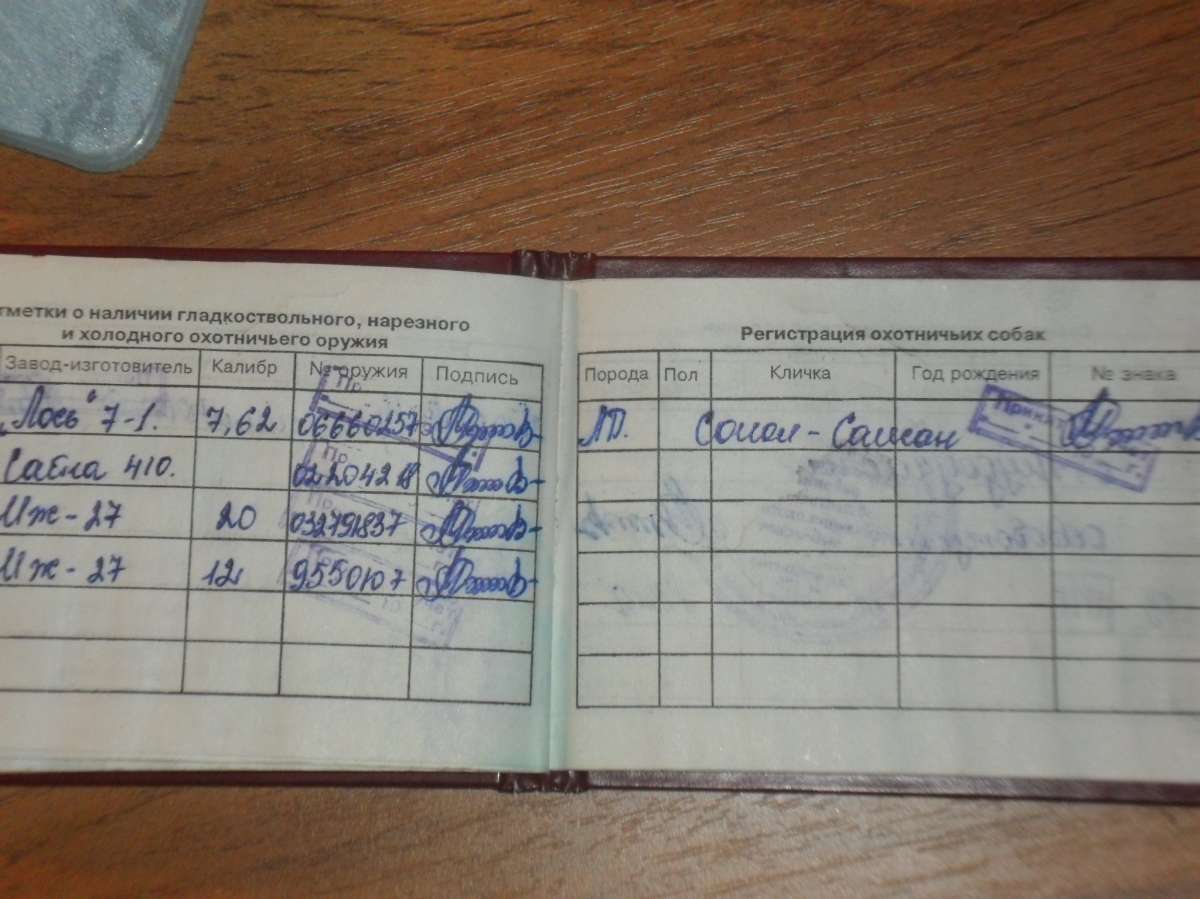 тметки о наличии гладкоствольного, нарезного
и холодного охотничьего оружия
Завод-изготовитель Калибр № оружия Подпись
„Лось" 7-1. 7,62 06660257
Сабла 410. 02204218
Иж-27 20 032791837
Иж-27 12 9550107
Регистрация охотничьих собак
Порода Пол Кличка Год рождения № знака